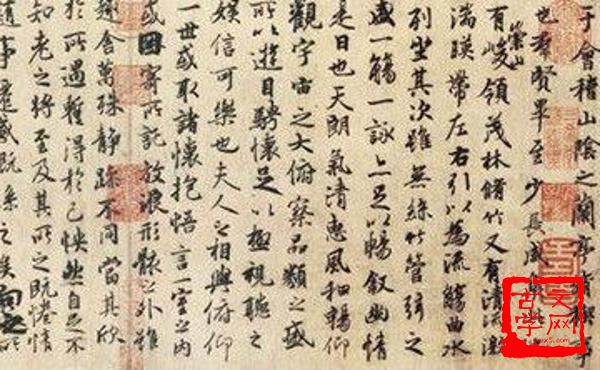 于會稽山陰之蘭亭脩禊事
也羣賢畢至少長咸集
有崇山峻領茂林脩竹又有清流激
湍暎帶左右引以為流觴曲水
列坐其次雖無絲竹管弦之
盛一觴一詠亦足以暢叙幽情
是日也天朗氣清惠風和暢仰
觀宇宙之大俯察品類之盛
所以遊目騁懷足以極視聽之
娛信可樂也夫人之相與俯仰
一世或取諸懷抱悟言一室之內
或因寄所託放浪形骸之外雖
趣舍萬殊靜躁不同當其欣
於所遇蹔得於己怏然自足不
知老之將至及其所之既惓情
隨事遷感慨係之矣向之所
古文
学网